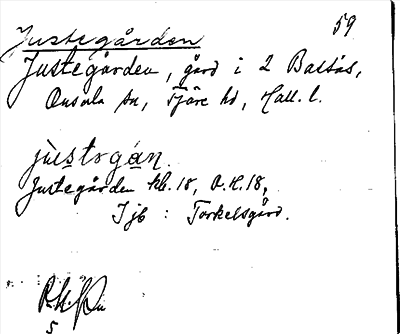 59
Justegården
Justegården, gård i 2 Bassås,
Onsala sn, Fjäre hd, Hall. l.
jùstəgán.
Justegården kb. 18, O.H. 18,
Ijb : Torkelsgård.
5